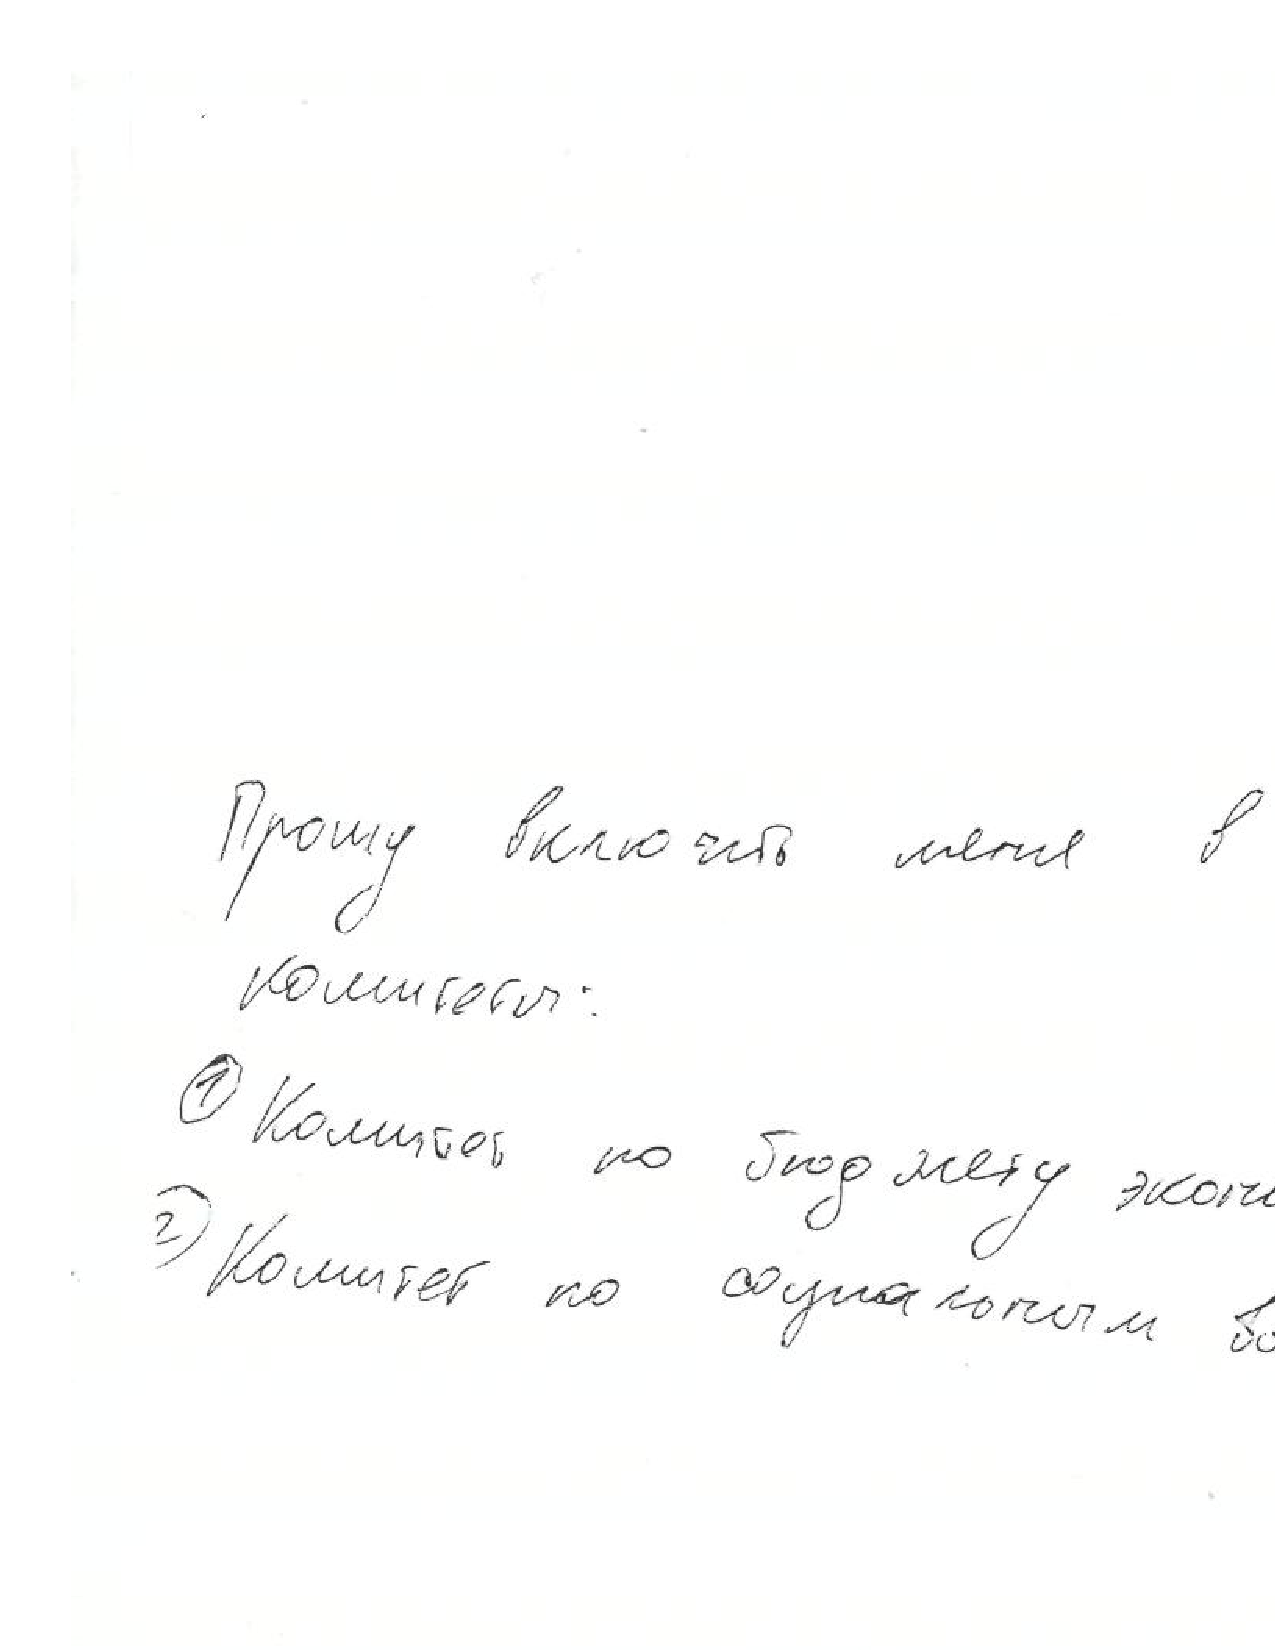 Прошу включить меня в
комитеты:
① Комитет по бюджету эконо
② Комитет по социальным во